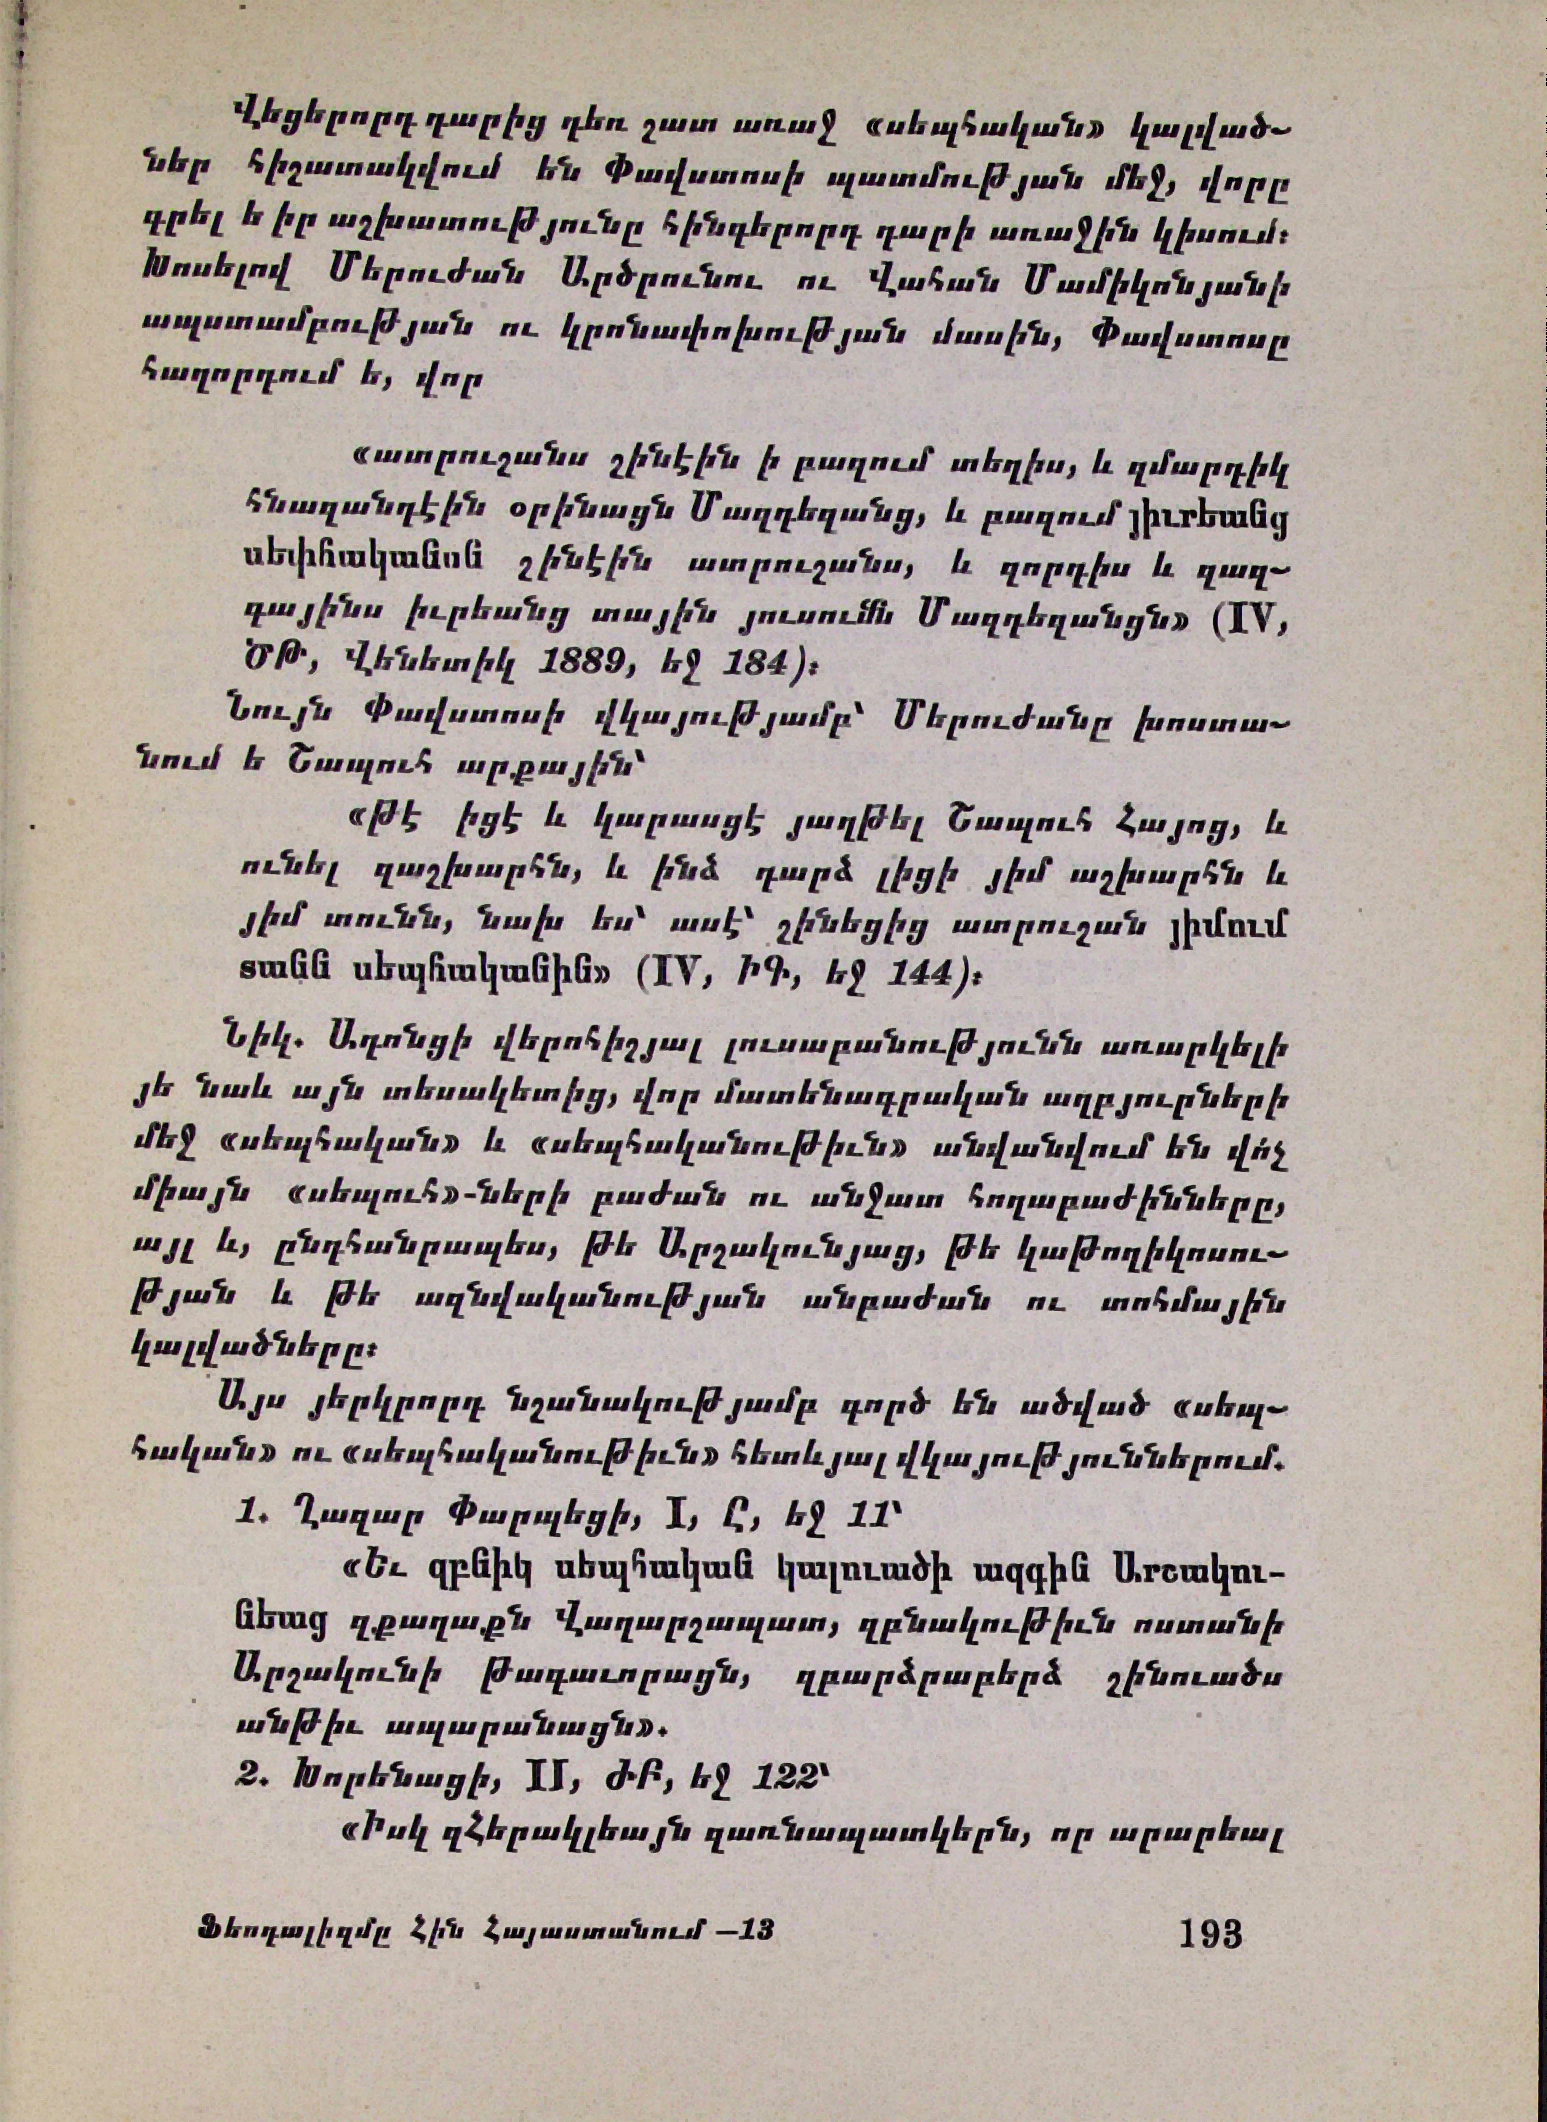 Վեցերորդ դարից դեռ շատ առաջ «սեպհական» կալված-
ներ հիշատակվում են Փավստոսի պատմության մեջ, վորը
գրել ե իր աշխատությունը հինգերորդ դարի առաջին կիսում։
Խոսելով Մերուժան Արծրունու ու Վահան Մամիկոնյանի
ապստամբության ու կրոնափոխության մասին, Փավստոսը
հաղորդում ե, վոր
«ատրուշանս շինէին ի բազում տեղիս, և զմարդիկ
հնազանդէին օրինացն Մազդեզանց, և բազում յիւրեանց
սեփհականսն շինէին ատրուշանս, և զորդիս և զազ-
գայինս իւրեանց տային յուսումն Մազդեզանցն» (IV,
ԾԹ, Վենետիկ 1889, եջ 184)։
Նույն Փավստոսի վկայությամբ՝ Մերուժանը խոստա-
նում ե Շապուհ արքային՝
«Թէ իցէ և կարասցէ յաղթել Շապուհ Հայոց, և
ունել զաշխարհն, և ինձ դարձ լիցի յիմ աշխարհն և
յիմ տունն, նախ ես՝ ասէ՝ շինեցից ատրուշան յիմում
տանն սեպհականին» (IV, ԻԳ, եջ 144)։
Նիկ. Ադոնցի վերոհիշյալ լուսաբանությունն առարկելի
յե նաև այն տեսակետից, վոր մատենագրական աղբյուրների
մեջ «սեպհական» և «սեպհականութիւն» անվանվում են վո՛չ
միայն «սեպուհ»-ների բաժան ու անջատ հողաբաժինները,
այլ և, ընդհանրապես, թե Արշակունյաց, թե կաթողիկոսու-
թյան և թե ազնվականության անբաժան ու տոհմային
կալվածները։
Այս յերկրորդ նշանակությամբ գործ են ածված «սեպ-
հական» ու «սեպհականութիւն» հետևյալ վկայություններում.
1. Ղազար Փարպեցի, I, Ը, եջ 11՝
«Եւ զբնիկ սեպհական կալուածի ազգին Արշակու-
նեաց զքաղաքն Վաղարշապատ, զբնակութիւն ոստանի
Արշակունի թագաւորացն, զբարձրաբերձ շինուածս
անթիւ ապարանացն».
2. Խորենացի, II, ԺԲ, եջ 122՝
«Իսկ զՀերակլեայն զառնապատկերն, որ արարեալ
Ֆեոդալիզմը Հին Հայաստանում —13
193